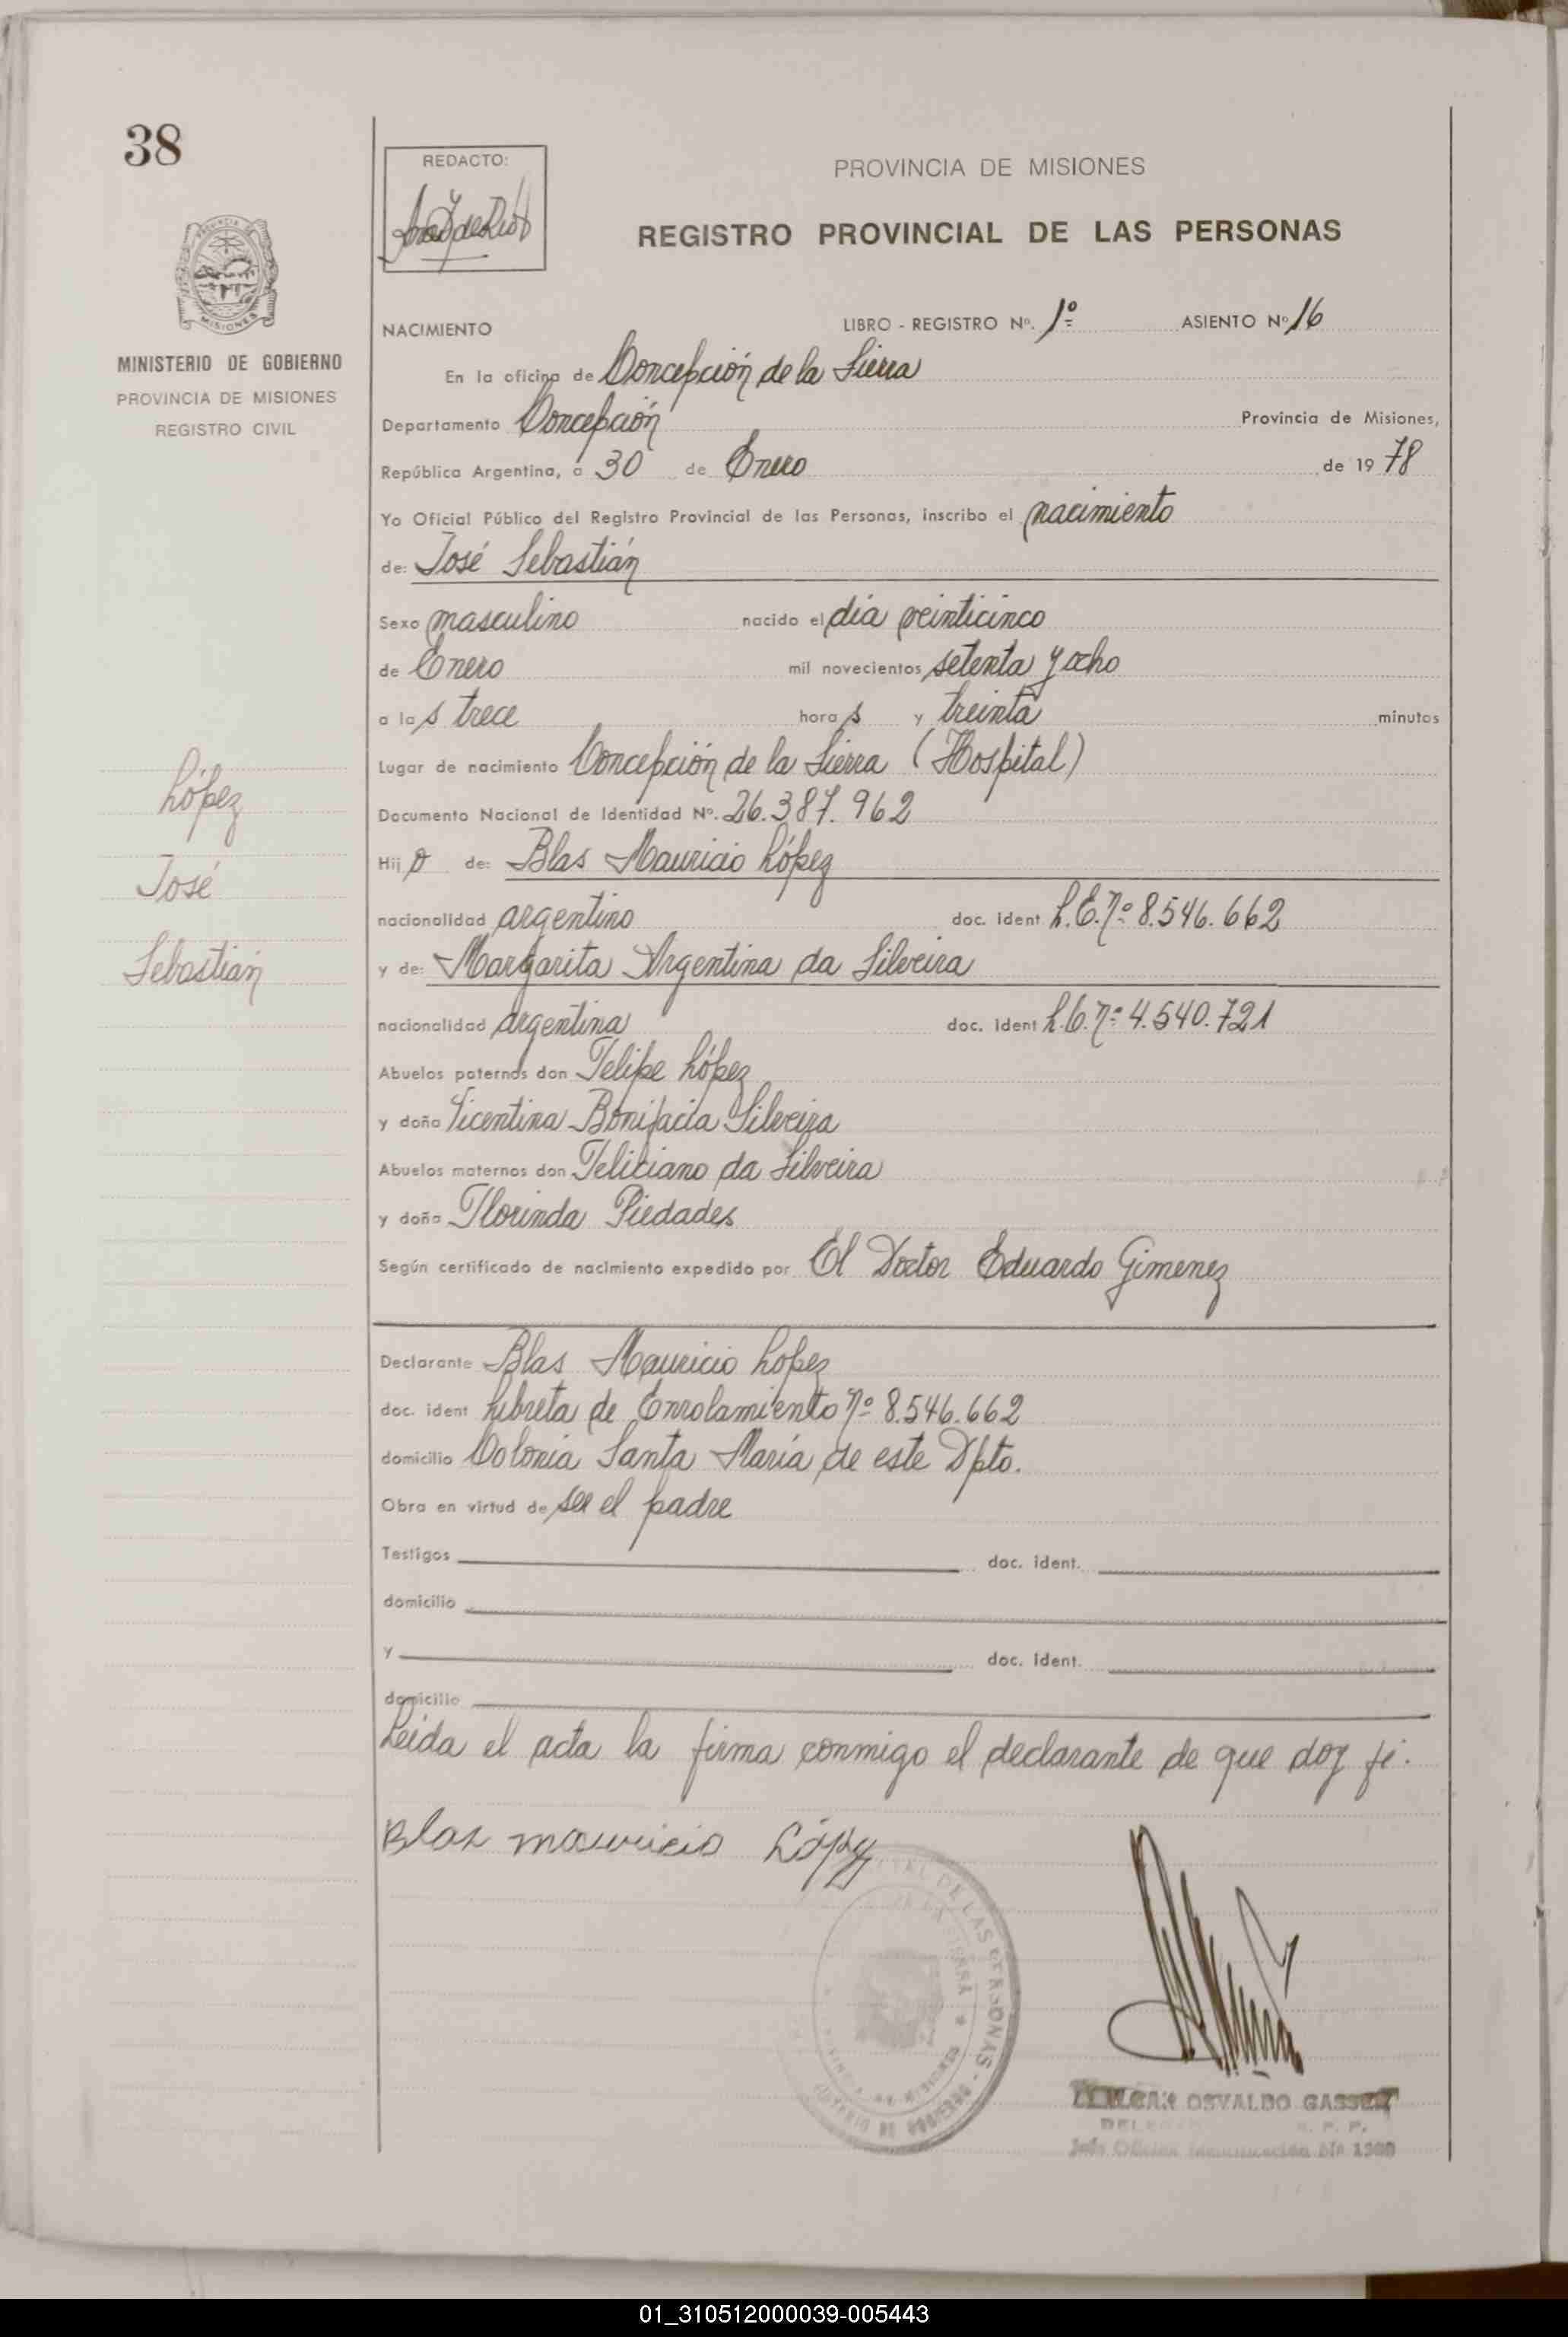 38
REDACTO:
PROVINCIA DE MISIONES
REGISTRO PROVINCIAL DE LAS PERSONAS
MISIONES
MINISTERIO DE GOBIERNO
PROVINCIA DE MISIONES
REGISTRO CIVIL
NACIMIENTO LIBRO - REGISTRO Nº. 1º ASIENTO Nº 16
En la oficina de Concepción de la Sierra
Departamento Concepción Provincia de Misiones,
República Argentina, a 30 de Enero de 19 78
Yo Oficial Público del Registro Provincial de las Personas, inscribo el nacimiento
de: José Sebastián
Sexo masculino nacido el día veinticinco
de Enero mil novecientos setenta y ocho
a las trece horas y treinta minutos
Lugar de nacimiento Concepción de la Sierra (Hospital)
Documento Nacional de Identidad Nº. 26.387.962
Hijo de: Blas Mauricio López
nacionalidad argentino doc. ident L.E. nº 8.546.662
y de: Margarita Argentina da Silveira
nacionalidad argentina doc. ident L.C. nº 4.540.721
Abuelos paternos don Felipe López
y doña Vicentina Bonifacia Silveira
Abuelos maternos don Feliciano da Silveira
y doña Florinda Piedades
Según certificado de nacimiento expedido por El Doctor Eduardo Gimenez
López
José
Sebastián
Declarante Blas Mauricio López
doc. ident Libreta de Enrolamiento nº 8.546.662
domicilio Colonia Santa María de este Dpto.
Obra en virtud de ser el padre
Testigos doc. ident.
domicilio
y doc. ident.
domicilio
Leída el acta la firma conmigo el declarante de que doy fé.
Blas mauricio López
DE LAS PERSONAS
OSVALDO GASSER
01_310512000039-005443